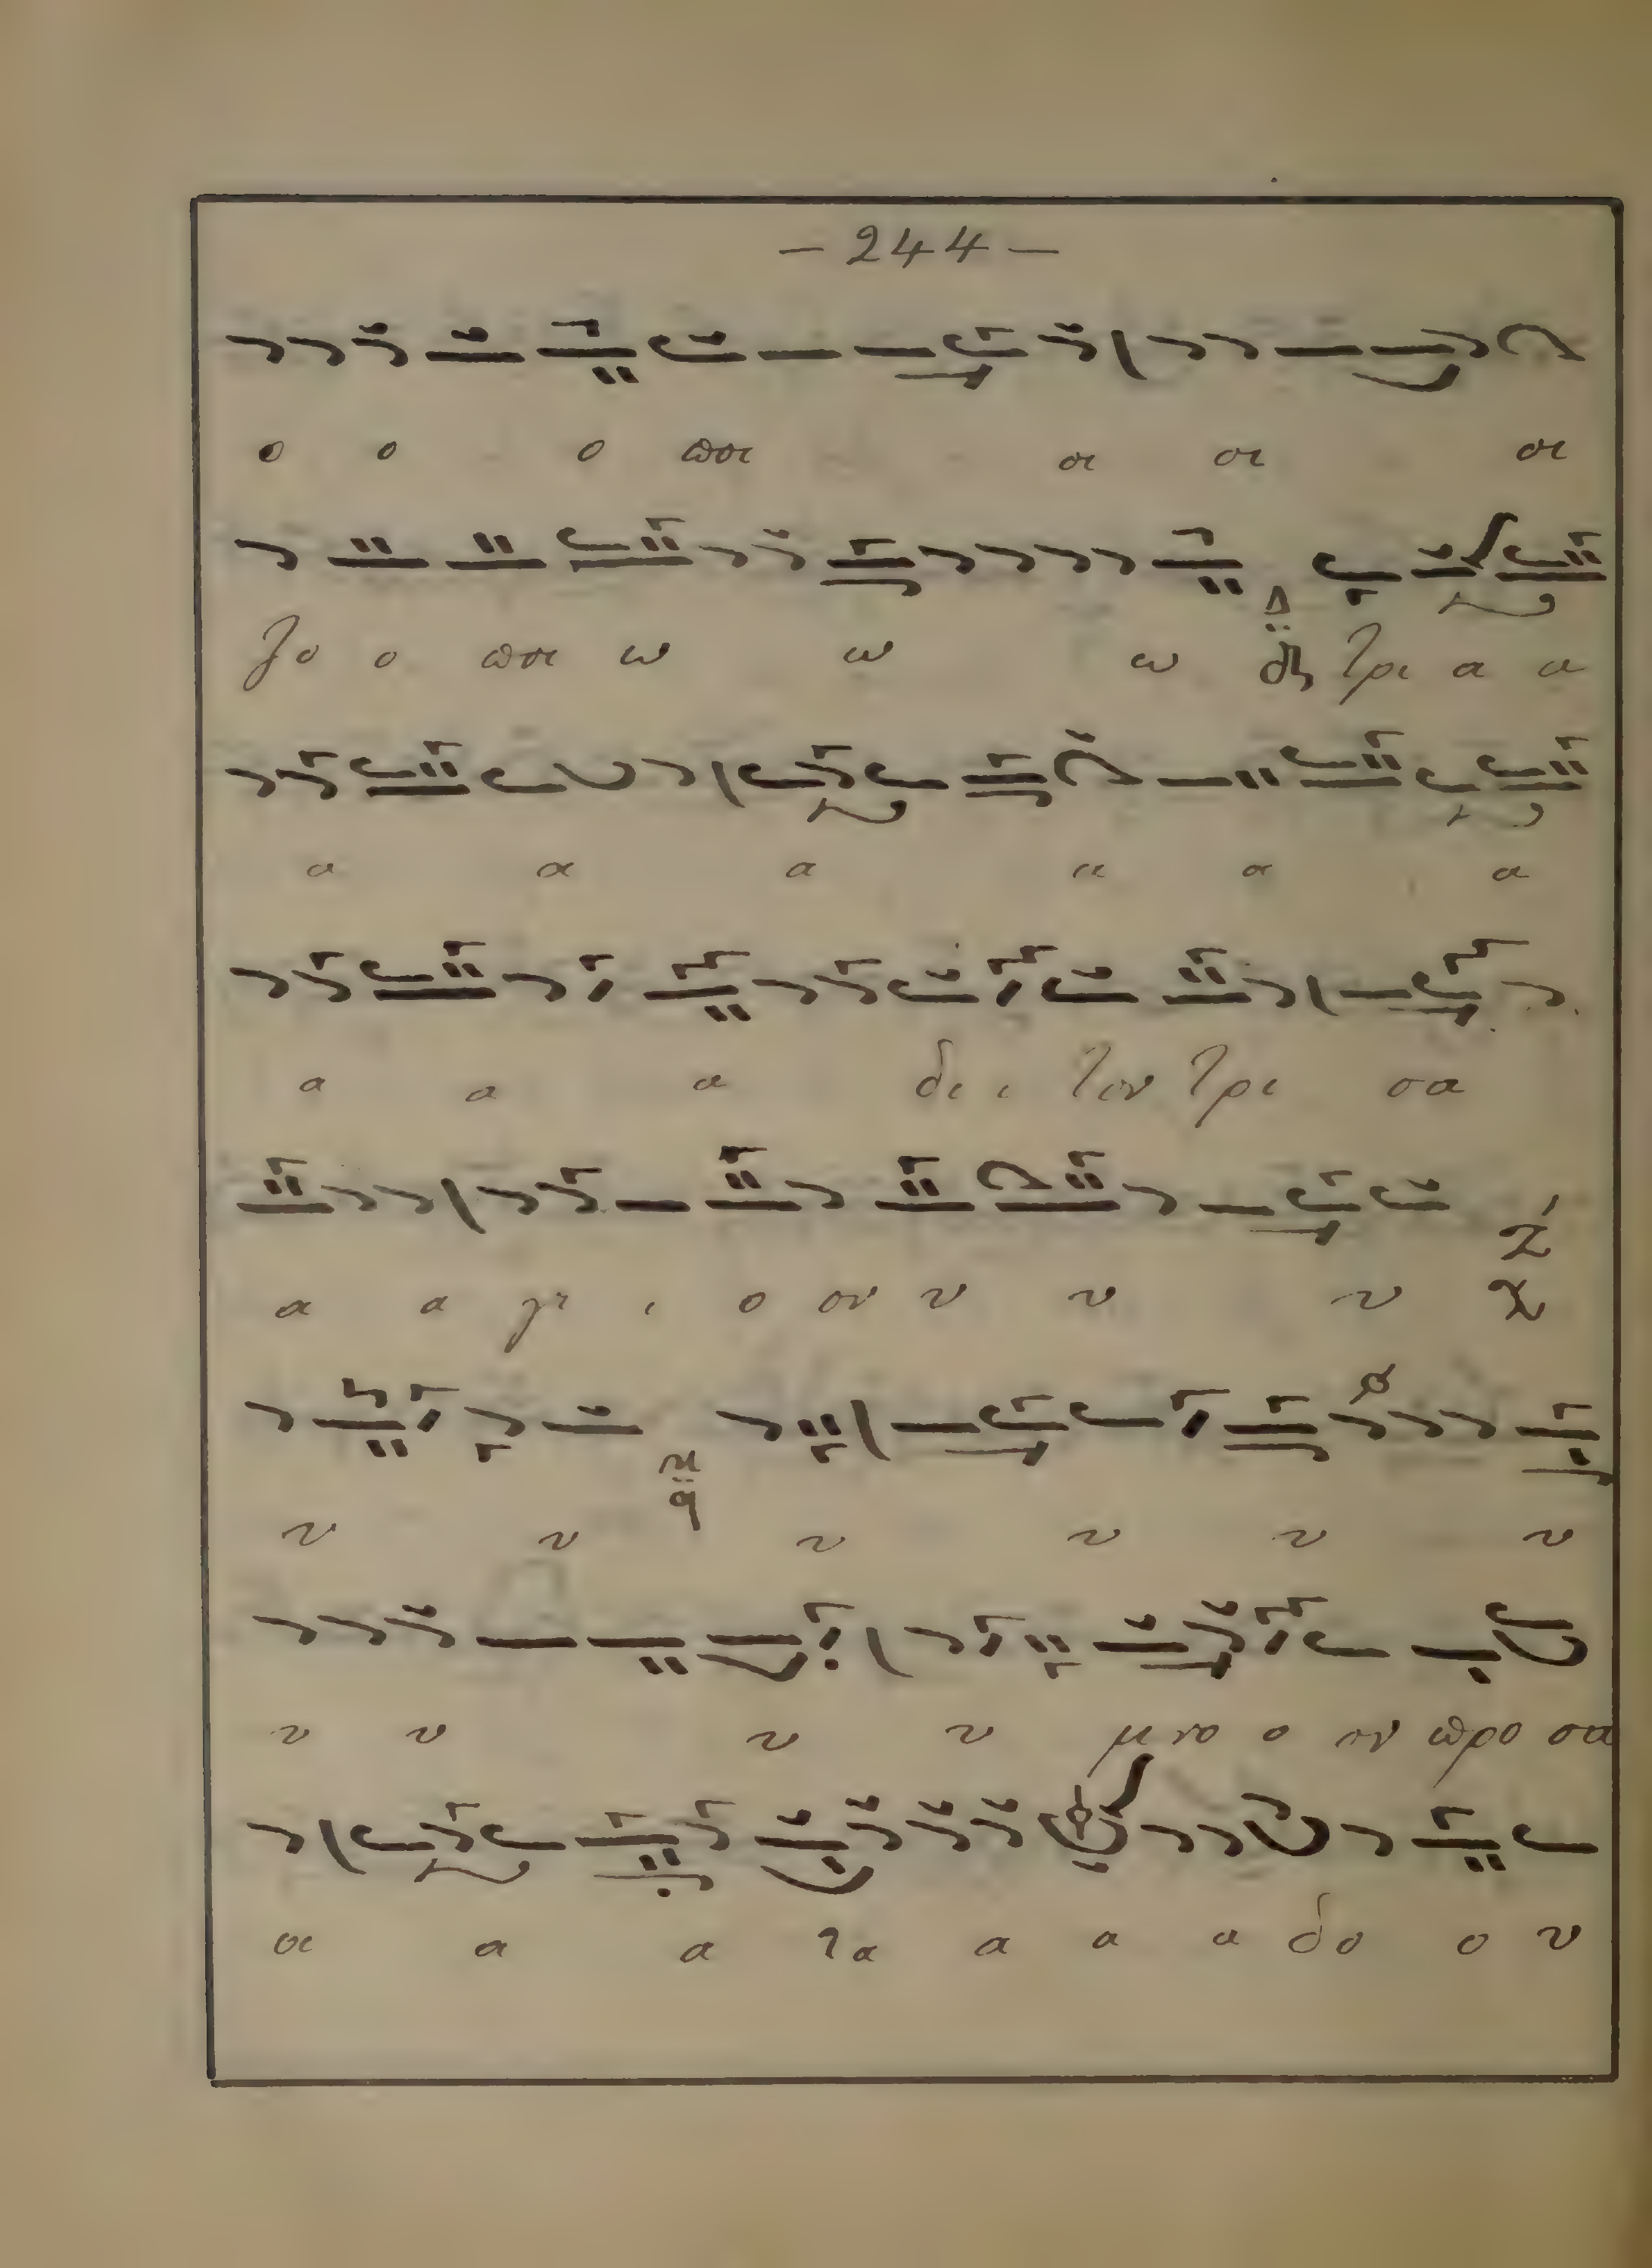 - 244 -
ο ο ο ποι οι οι οι
ζο ο ποι ω ω ω Δ δι τρι α α
α α α α α α
α α α δι ι τον τρι σα
α α γι ι ο ον υ υ υ Ζ
υ υ υ υ υ υ
υ υ υ υ μνο ο ον προ σα
α α τα α α α δο ο υ